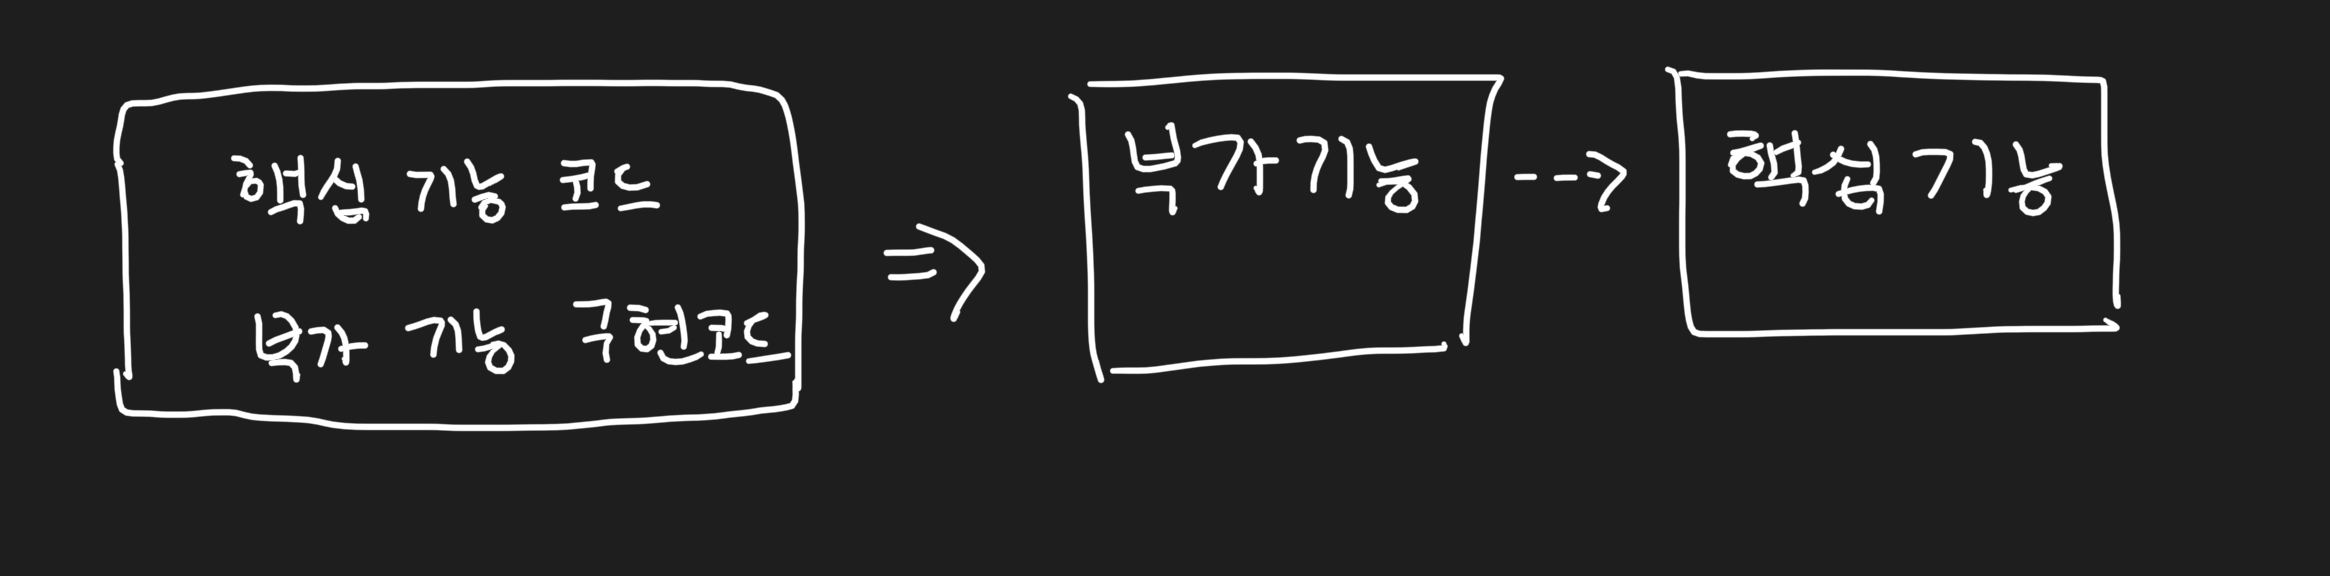 핵심 기능 코드
부가 기능 구현코드
⇒
부가기능
--->
핵심기능